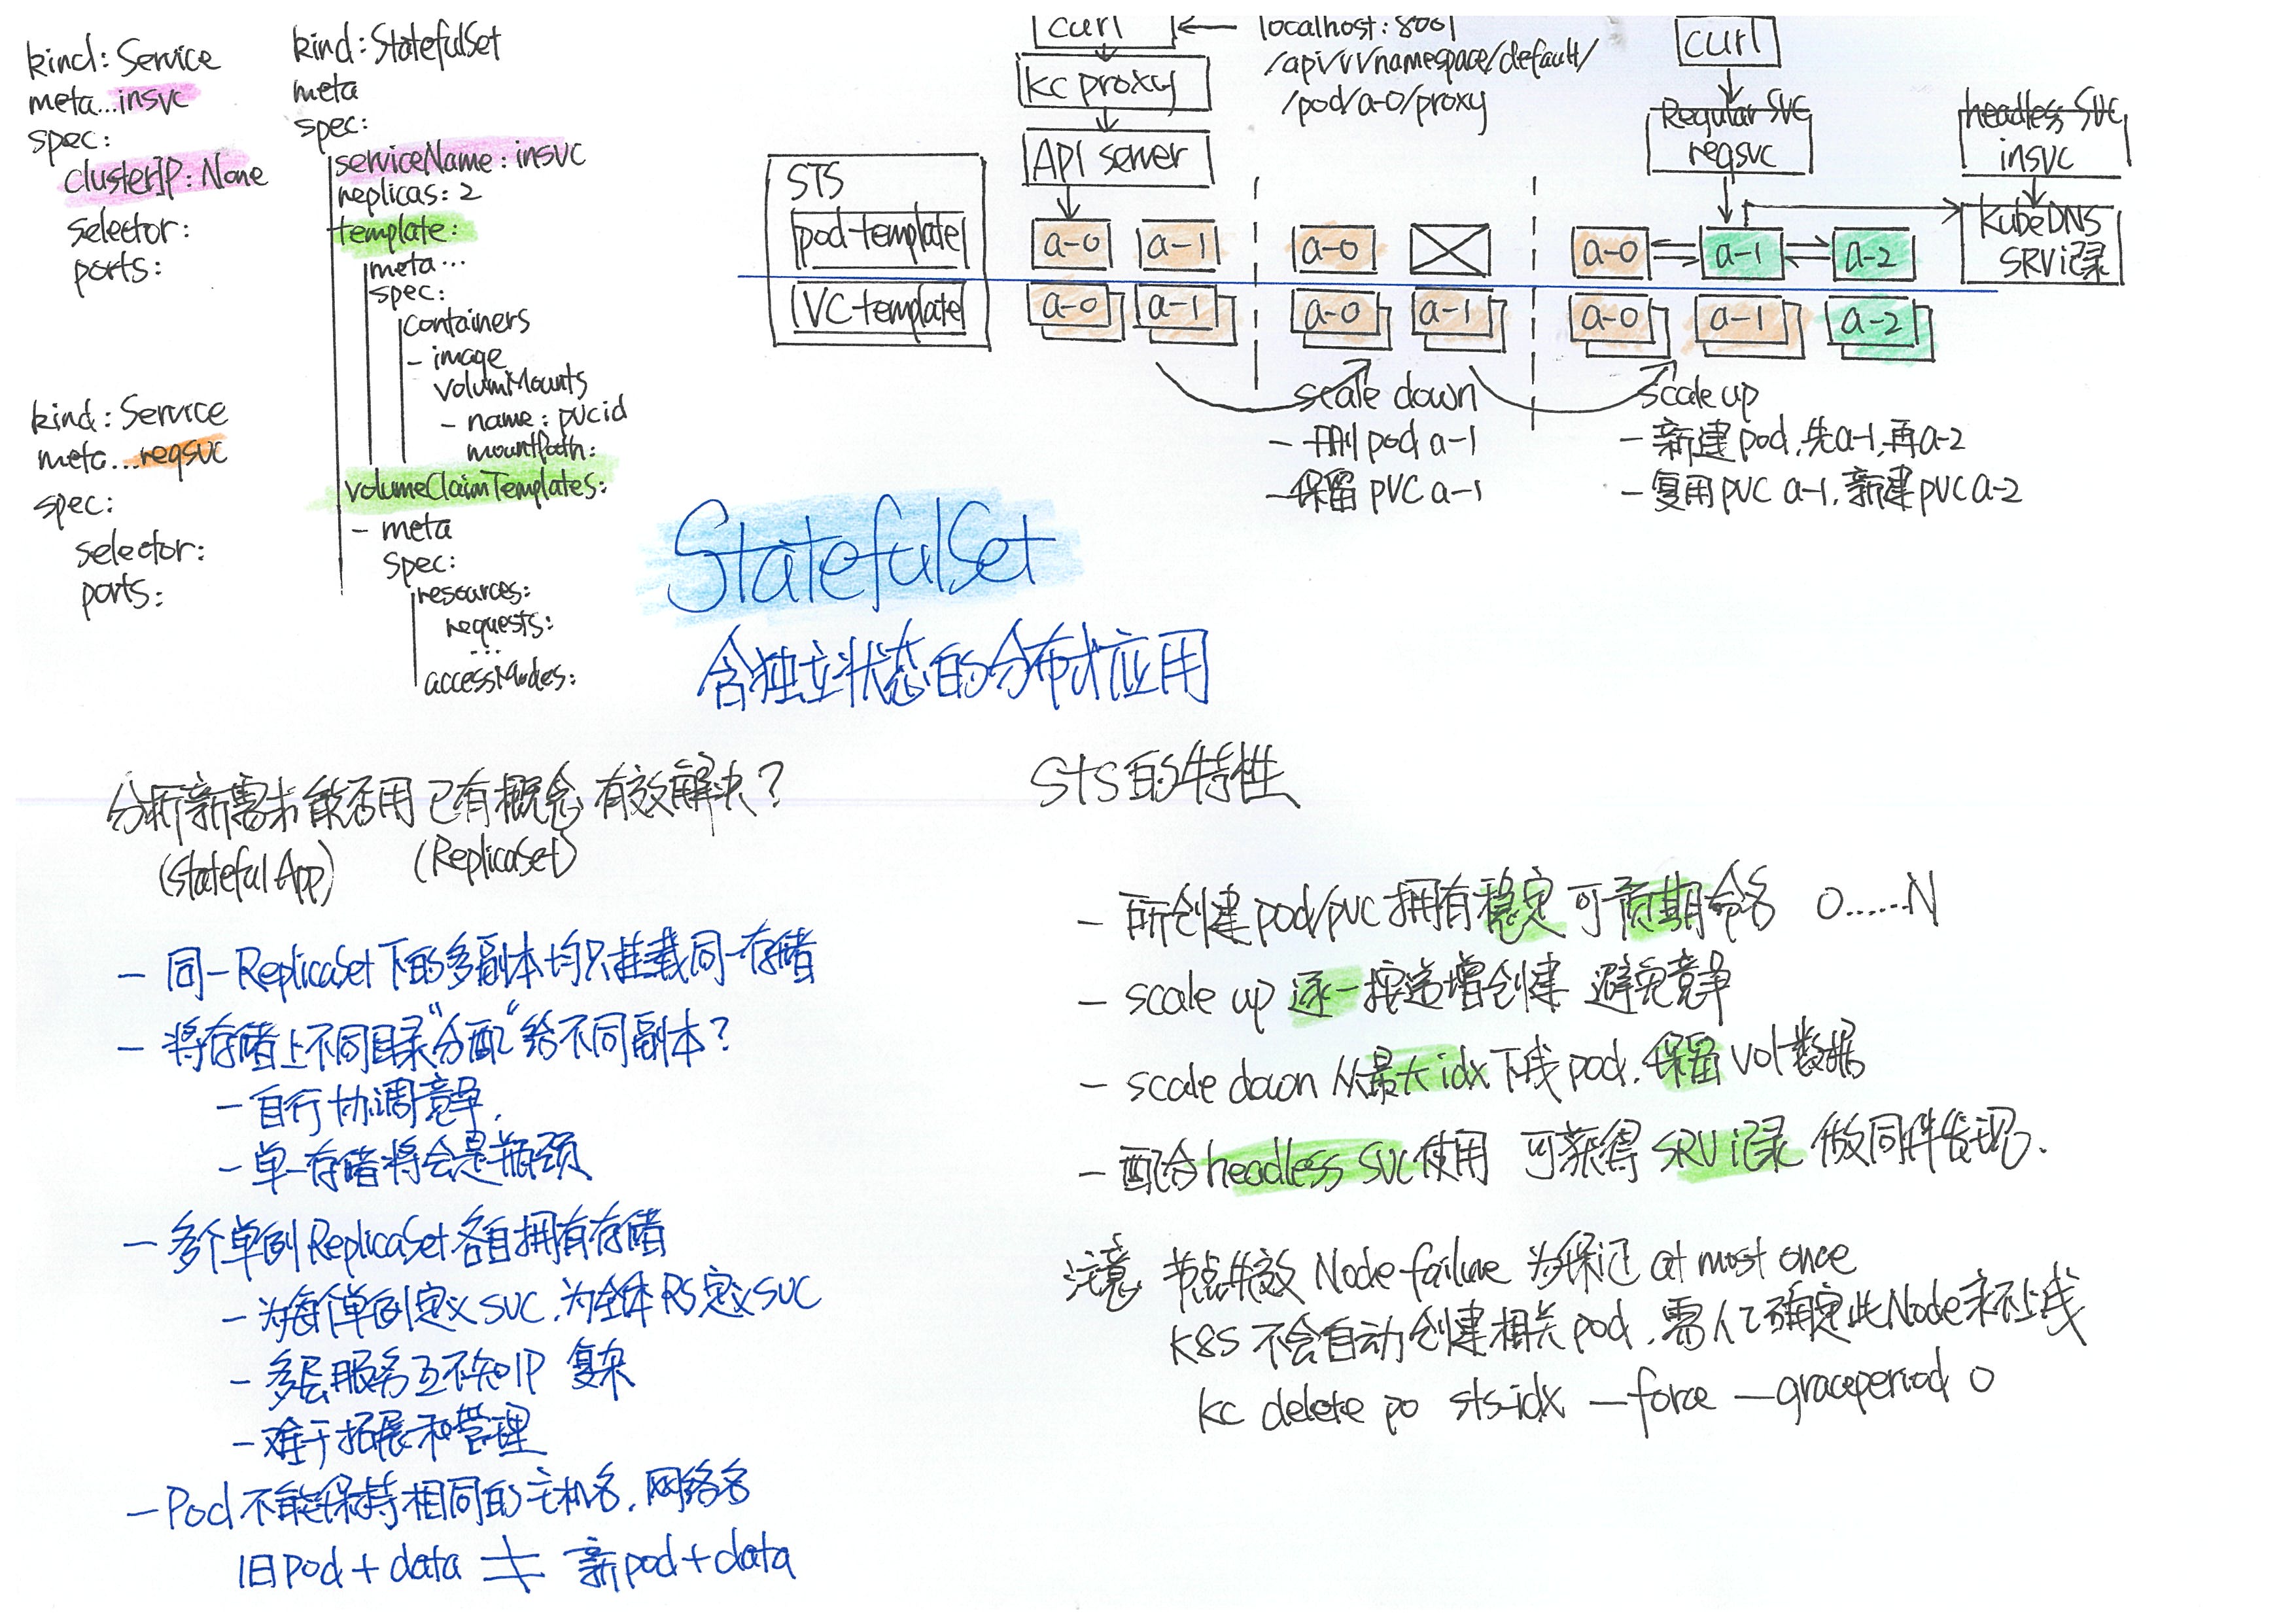 kind: Service
meta...insvc
spec:
clusterIP: None
selector:
ports:
kind: Service
meta...regsvc
spec:
selector:
ports:
kind: StatefulSet
meta
spec:
serviceName: insvc
replicas: 2
template:
meta...
spec:
containers
- image
volumMounts
- name: pvcid
mountPath:
volumeClaimTemplates:
- meta
spec:
resources:
requests:
...
accessModes:
STS
pod-template
VC-template
curl
localhost:8001
/api/v1/namespace/default/
/pod/a-0/proxy
kc proxy
API server
a-0 a-1
a-0 a-1
a-0
a-0 a-1
scale down
- 删 pod a-1
- 保留 PVC a-1
curl
Regular SVC
regsvc
headless SVC
insvc
KubeDNS
SRV记录
a-0 a-1 a-2
a-0 a-1 a-2
scale up
- 新建 pod, 先a-1, 再a-2
- 复用 PVC a-1, 新建 PVC a-2
StatefulSet
含独立状态的分布式应用
分析新需求能否用已有概念有效解决?
(Stateful App) (ReplicaSet)
- 同一ReplicaSet下的多副本均只挂载同一存储
- 将存储上不同目录"分配"给不同副本?
- 自行协调竞争,
- 单一存储将会是瓶颈
- 多个单例ReplicaSet各自拥有存储
- 为每个单例定义SVC, 为全体RS定义SVC
- 多层服务互不知IP 复杂
- 难于拓展和管理
- Pod不能保持相同的主机名, 网络名
旧pod + data ≠ 新pod + data
STS的特性
- 所创建pod/pvc拥有稳定可预期命名 0......N
- scale up 逐一按递增创建 避免竞争
- scale down 从最大idx下线pod, 保留vol数据
- 配合headless svc使用 可获得SRV记录 做同伴发现.
注意 节点失效 Node failure 为保证 at most once
K8S 不会自动创建相关pod, 需人工确定此Node永不上线
kc delete po sts-idx --force --graceperiod 0